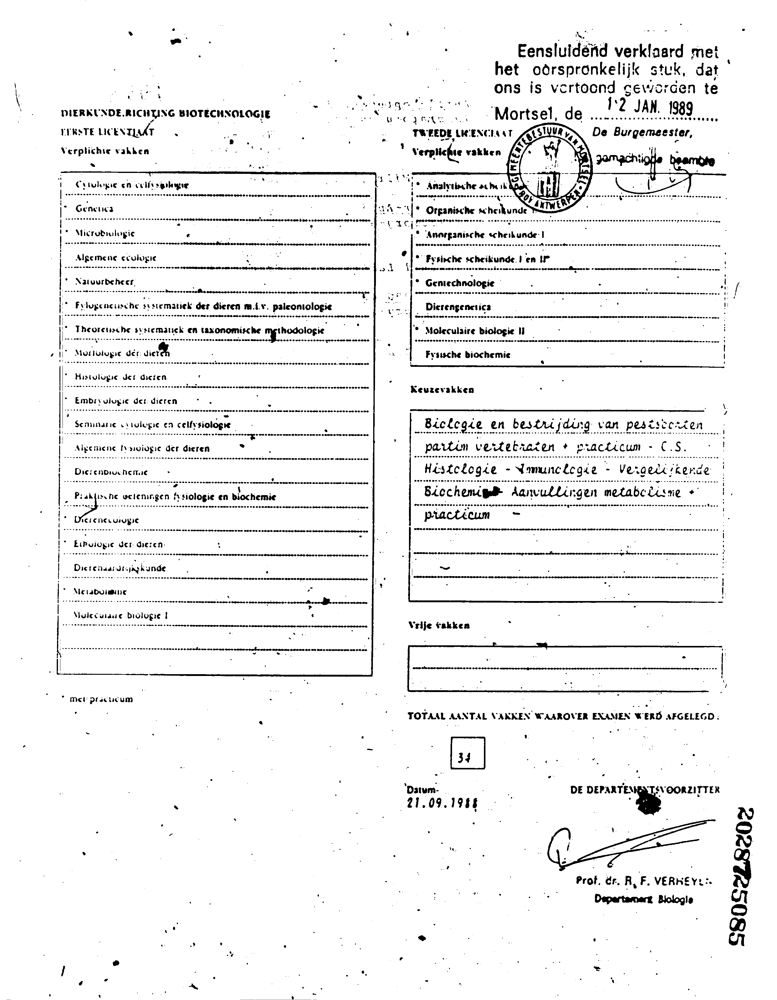 Eensluidend verklaard met
het oorspronkelijk stuk, dat
ons is vertoond geworden te
Mortsel, de 12 JAN. 1989
De Burgemeester,
gemachtigde beambte
GEMEENTEBESTUUR VAN MORTSEL - PROV ANTWERPEN -
DIERKUNDE, RICHTING BIOTECHNOLOGIE
EERSTE LICENTIAAT
Verplichte vakken
Cytologie en celfysiologie
* Genetica
* Microbiologie
Algemene ecologie
* Natuurbeheer
* Fylogenetische systematiek der dieren m.i.v. paleontologie
* Theoretische systematiek en taxonomische methodologie
* Morfologie der dieren
* Histologie der dieren
* Embryologie der dieren
Seminarie cytologie en celfysiologie
Algemene fysiologie der dieren
Dierenbiochemie
Praktische oefeningen fysiologie en biochemie
* Dierenecologie
* Ethologie der dieren
Dierenaardrijkskunde
* Metabolisme
Moleculaire biologie I
* met practicum
TWEEDE LICENTIAAT
Verplichte vakken
* Analytische scheik
* Organische scheikunde
* Anorganische scheikunde I
* Fysische scheikunde I en II
* Gentechnologie
Dierengenetica
* Moleculaire biologie II
Fysische biochemie
Keuzevakken
Biologie en bestrijding van pestsoorten
partim vertebraten + practicum - C.S.
Histologie - Immunologie - Vergelijkende
Biochemie - Aanvullingen metabolisme +
practicum -
Vrije vakken
TOTAAL AANTAL VAKKEN WAAROVER EXAMEN WERD AFGELEGD:
34
Datum
21.09.1988
DE DEPARTEMENTSVOORZITTER
Prof. dr. R. F. VERHEYEN
Departement Biologie
2028725085